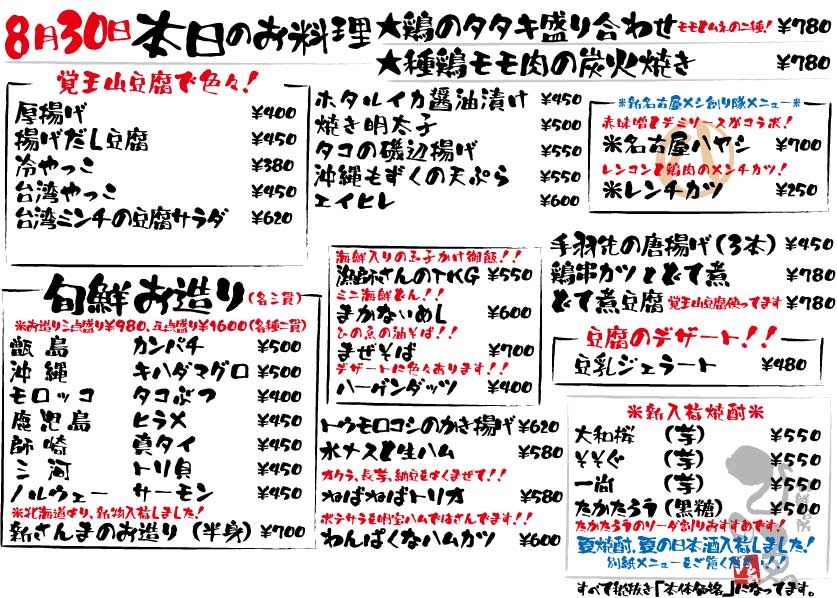 8月30日 本日のお料理
★鶏のタタキ盛り合わせ モモとムネの二種! ¥780
★種鶏モモ肉の炭火焼き ¥780
覚王山豆腐で色々!
厚揚げ ¥400
揚げだし豆腐 ¥450
冷やっこ ¥380
台湾やっこ ¥450
台湾ミンチの豆腐サラダ ¥620
ホタルイカ醤油漬け ¥450
焼き明太子 ¥500
タコの磯辺揚げ ¥550
沖縄もずくの天ぷら ¥550
エイヒレ ¥600
※新名古屋メシ創り隊メニュー※
赤味噌とデミソースがコラボ!
※名古屋ハヤシ ¥700
レンコンと鶏肉のメンチカツ!
※レンチカツ ¥250
旬鮮お造り(各三貫)
※お造り三点盛り¥980、五点盛り¥1600(各種二貫)
甑島 カンパチ ¥500
沖縄 キハダマグロ ¥500
モロッコ タコぶつ ¥400
鹿児島 ヒラメ ¥450
師崎 真タイ ¥450
三河 トリ貝 ¥450
ノルウェー サーモン ¥450
※北海道より、新物入荷しました!
新さんまのお造り(半身) ¥700
海鮮入りの玉子かけ御飯!!
漁師さんのTKG ¥550
ミニ海鮮どん!!
まかないめし ¥600
ひの魚の油そば!!
まぜそば ¥700
デザートに色々あります!!
ハーゲンダッツ ¥400
トウモロコシのかき揚げ ¥620
水ナスと生ハム ¥580
オクラ、長芋、納豆をよくまぜて!!
ねばねばトリオ ¥580
ポテサラを明宝ハムではさんでます!!
わんぱくなハムカツ ¥600
手羽先の唐揚げ(3本) ¥450
鶏串カツとどて煮 ¥780
どて煮豆腐 覚王山豆腐使ってます ¥780
豆腐のデザート!!
豆乳ジェラート ¥480
※新入荷焼酎※
大和桜 (芋) ¥550
そそぐ (芋) ¥550
一尚 (芋) ¥550
たかたろう(黒糖) ¥500
たかたろうのソーダ割りおすすめです!
夏焼酎、夏の日本酒入荷しました!
別紙メニューをご覧ください!!
すべて税抜き「本体価格」になってます。